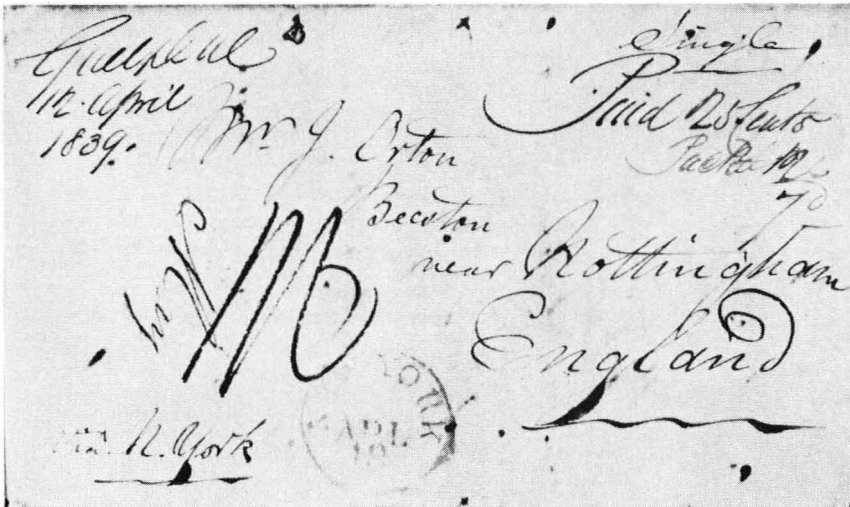 Guelph UC
12 April
1839.
Single
Paid 25 Cents
Mr. J. Orton
Beeston
near Nottingham
England
via N. York
YORK
APR